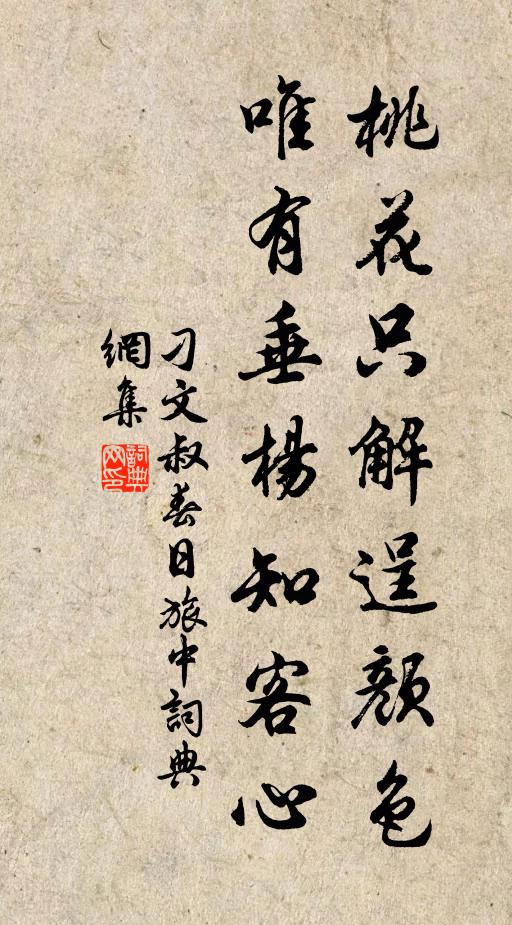 桃花只解逞顏色
唯有垂楊知客心
刁文叔春日旅中詞典
網集
詞典網印